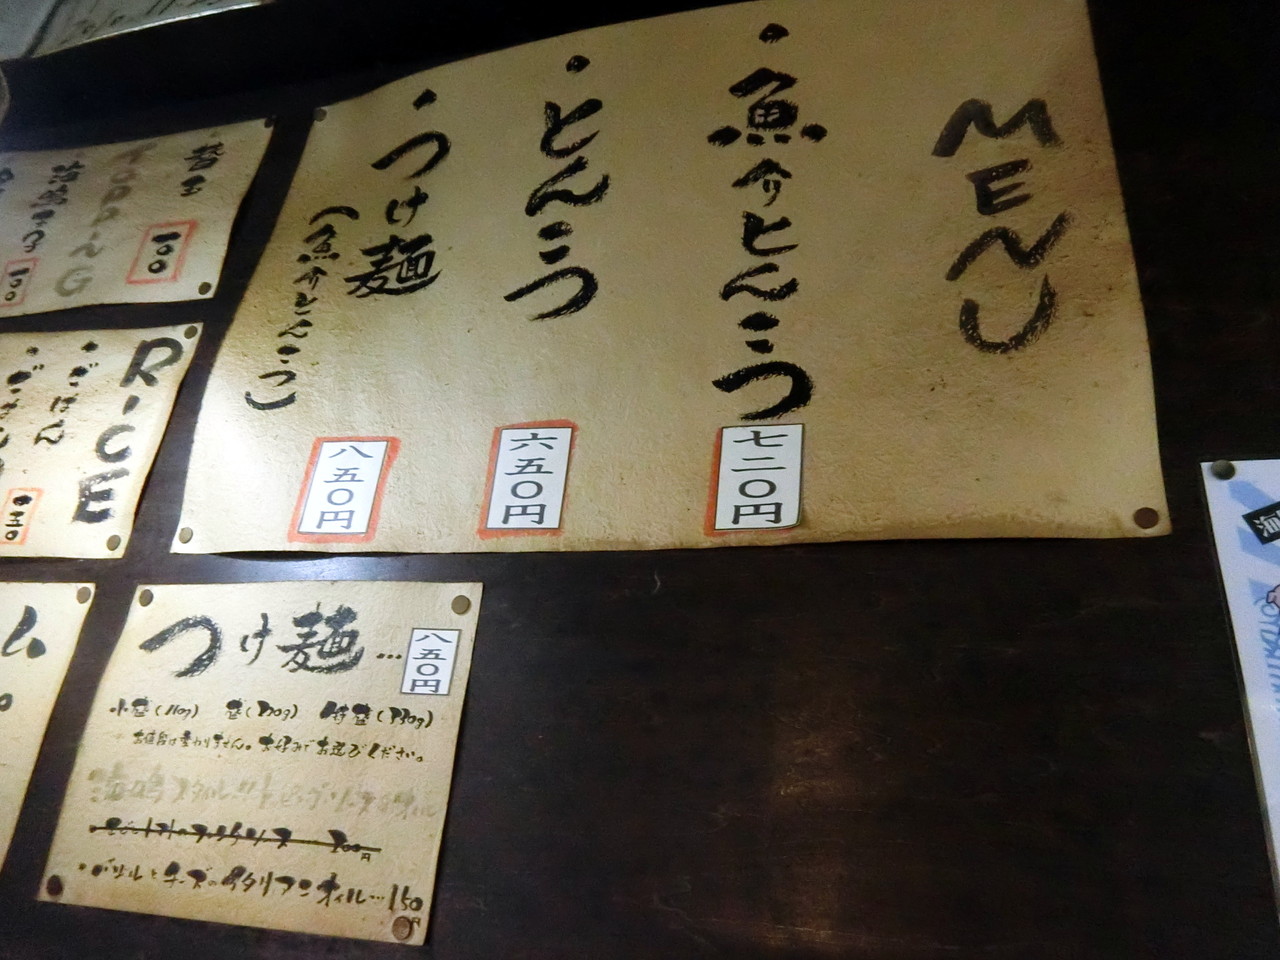 MENU
・魚介とんこつ
七二〇円
・とんこつ
六五〇円
・つけ麺
(魚介とんこつ)
八五〇円
替玉
一〇〇
TOPPING
一〇〇
RICE
・ごはん
つけ麺…八五〇円
小盛(110g) 並(220g) 特盛(330g)
お値段は変わりません。お好みでお選びください。
・バジルとチーズのイタリアンオイル…150円